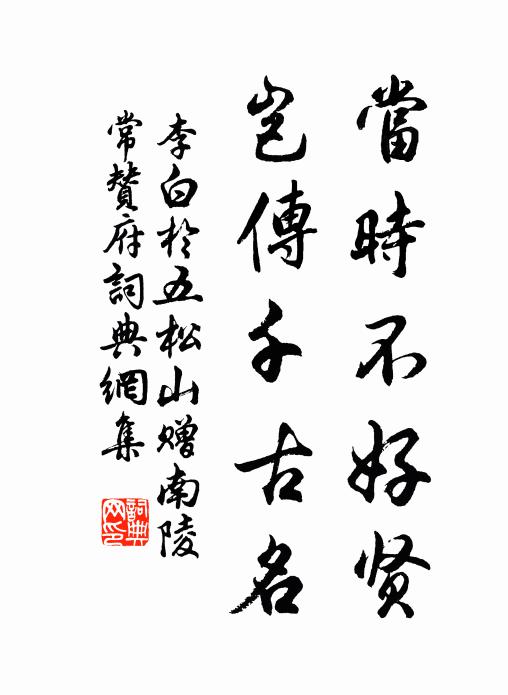 當時不好贤
岂傳千古名
李白於五松山赠南陵
常赞府詞典網集
詞典网印